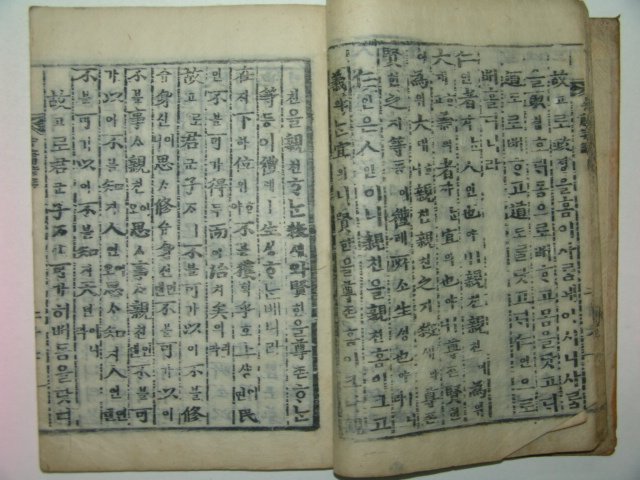 故고로政졍을홈이사ᄅᆞᆷ애이시니사ᄅᆞᆷ
을取ᄎᆔ호ᄃᆡ몸으로ᄡᅥᄒᆞ고몸을닷고ᄃᆡ
道도로ᄡᅥᄒᆞ고道도를닷고ᄃᆡ仁인으로
ᄡᅥ홀디니라
仁인者쟈ᄂᆞᆫ人인也야ㅣ니親친親친이爲위
大대ᄒᆞ고義의者쟈ᄂᆞᆫ宜의也야ㅣ니尊존賢현이
爲위大대ᄒᆞ니親친親친之지殺쇄와尊존
賢현之지等등이禮례所소生ᄉᆡᆼ也야ㅣ니라
仁인은人인이니親친을親친홈이크고
義의ᄂᆞᆫ宜의니賢현을尊존홈이크니
親친을親친ᄒᆞᄂᆞᆫ殺쇄와賢현을尊존ᄒᆞᄂᆞᆫ
等등이禮례ㅣ生ᄉᆡᆼᄒᆞᆫ배니라
在ᄌᆡ下하位위ᄒᆞ야不블獲획乎호上샹이면民
민不블可가得득而이治치矣의리라
故고로君군子ᄌᆞㅣ不블可가以이不블修슈
身신이니思ᄉᆞ修슈身신인댄不블可가以이
不블事ᄉᆞ親친이오思ᄉᆞ事ᄉᆞ親친인댄不블可
가以이不블知지人인이오思ᄉᆞ知지人인인댄
不블可가以이不블知지天텬이니라
故고로君군子ᄌᆞㅣ可가히ᄡᅥ몸을닷디